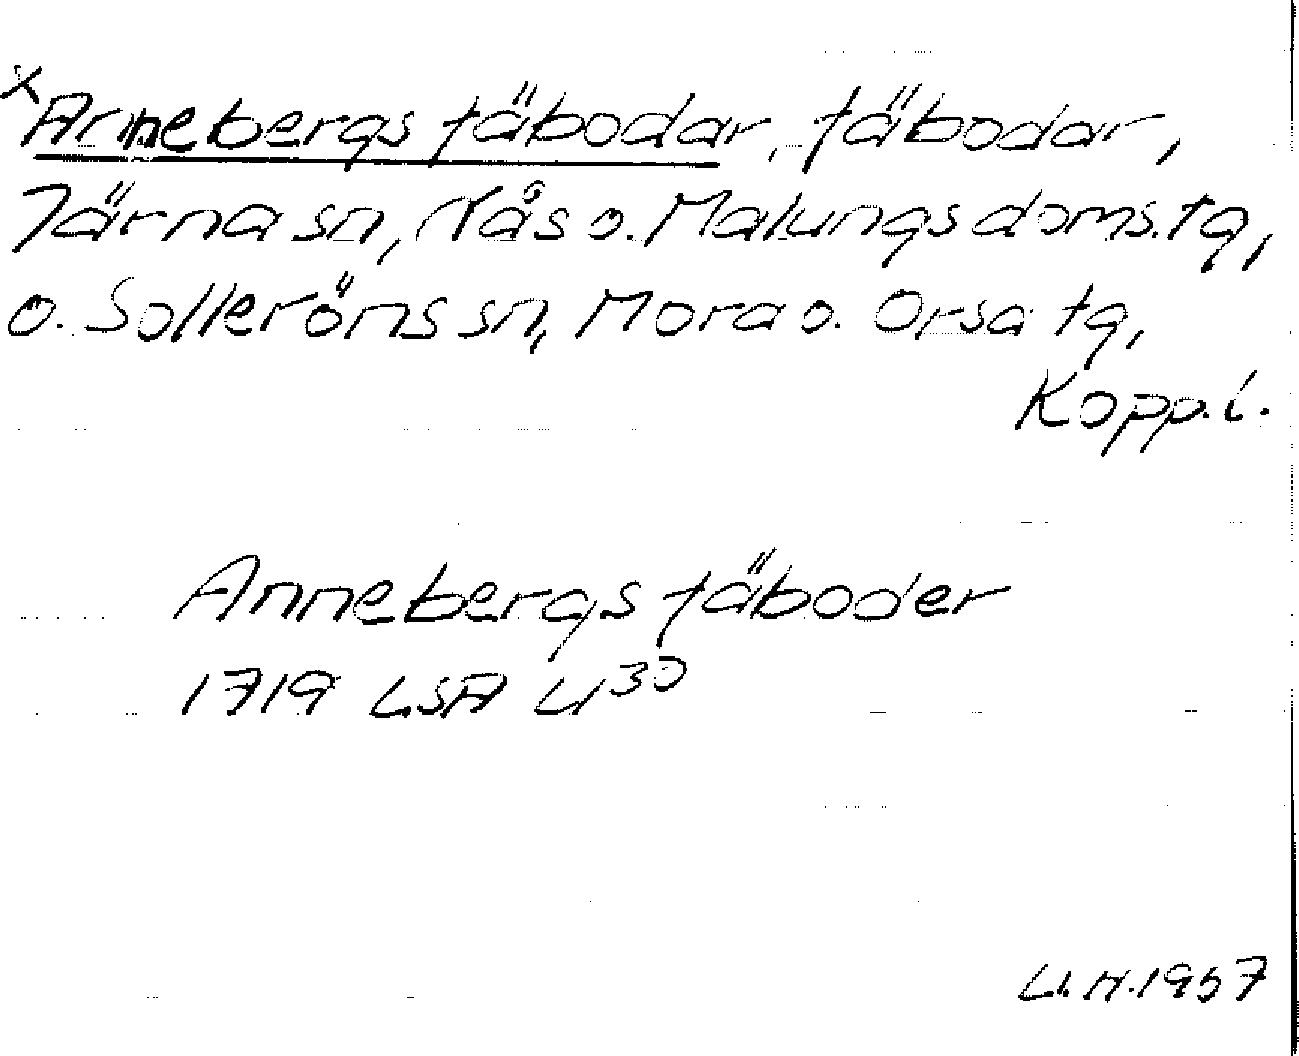 ×Annebergs täbodar, täbodar,
Järna sn, Nås o. Malungs doms. tg,
o. Solleröns sn, Mora o. Orsa tg,
Kopp. l.
Annebergs täboder
1719 LSA U30
U.H. 1957